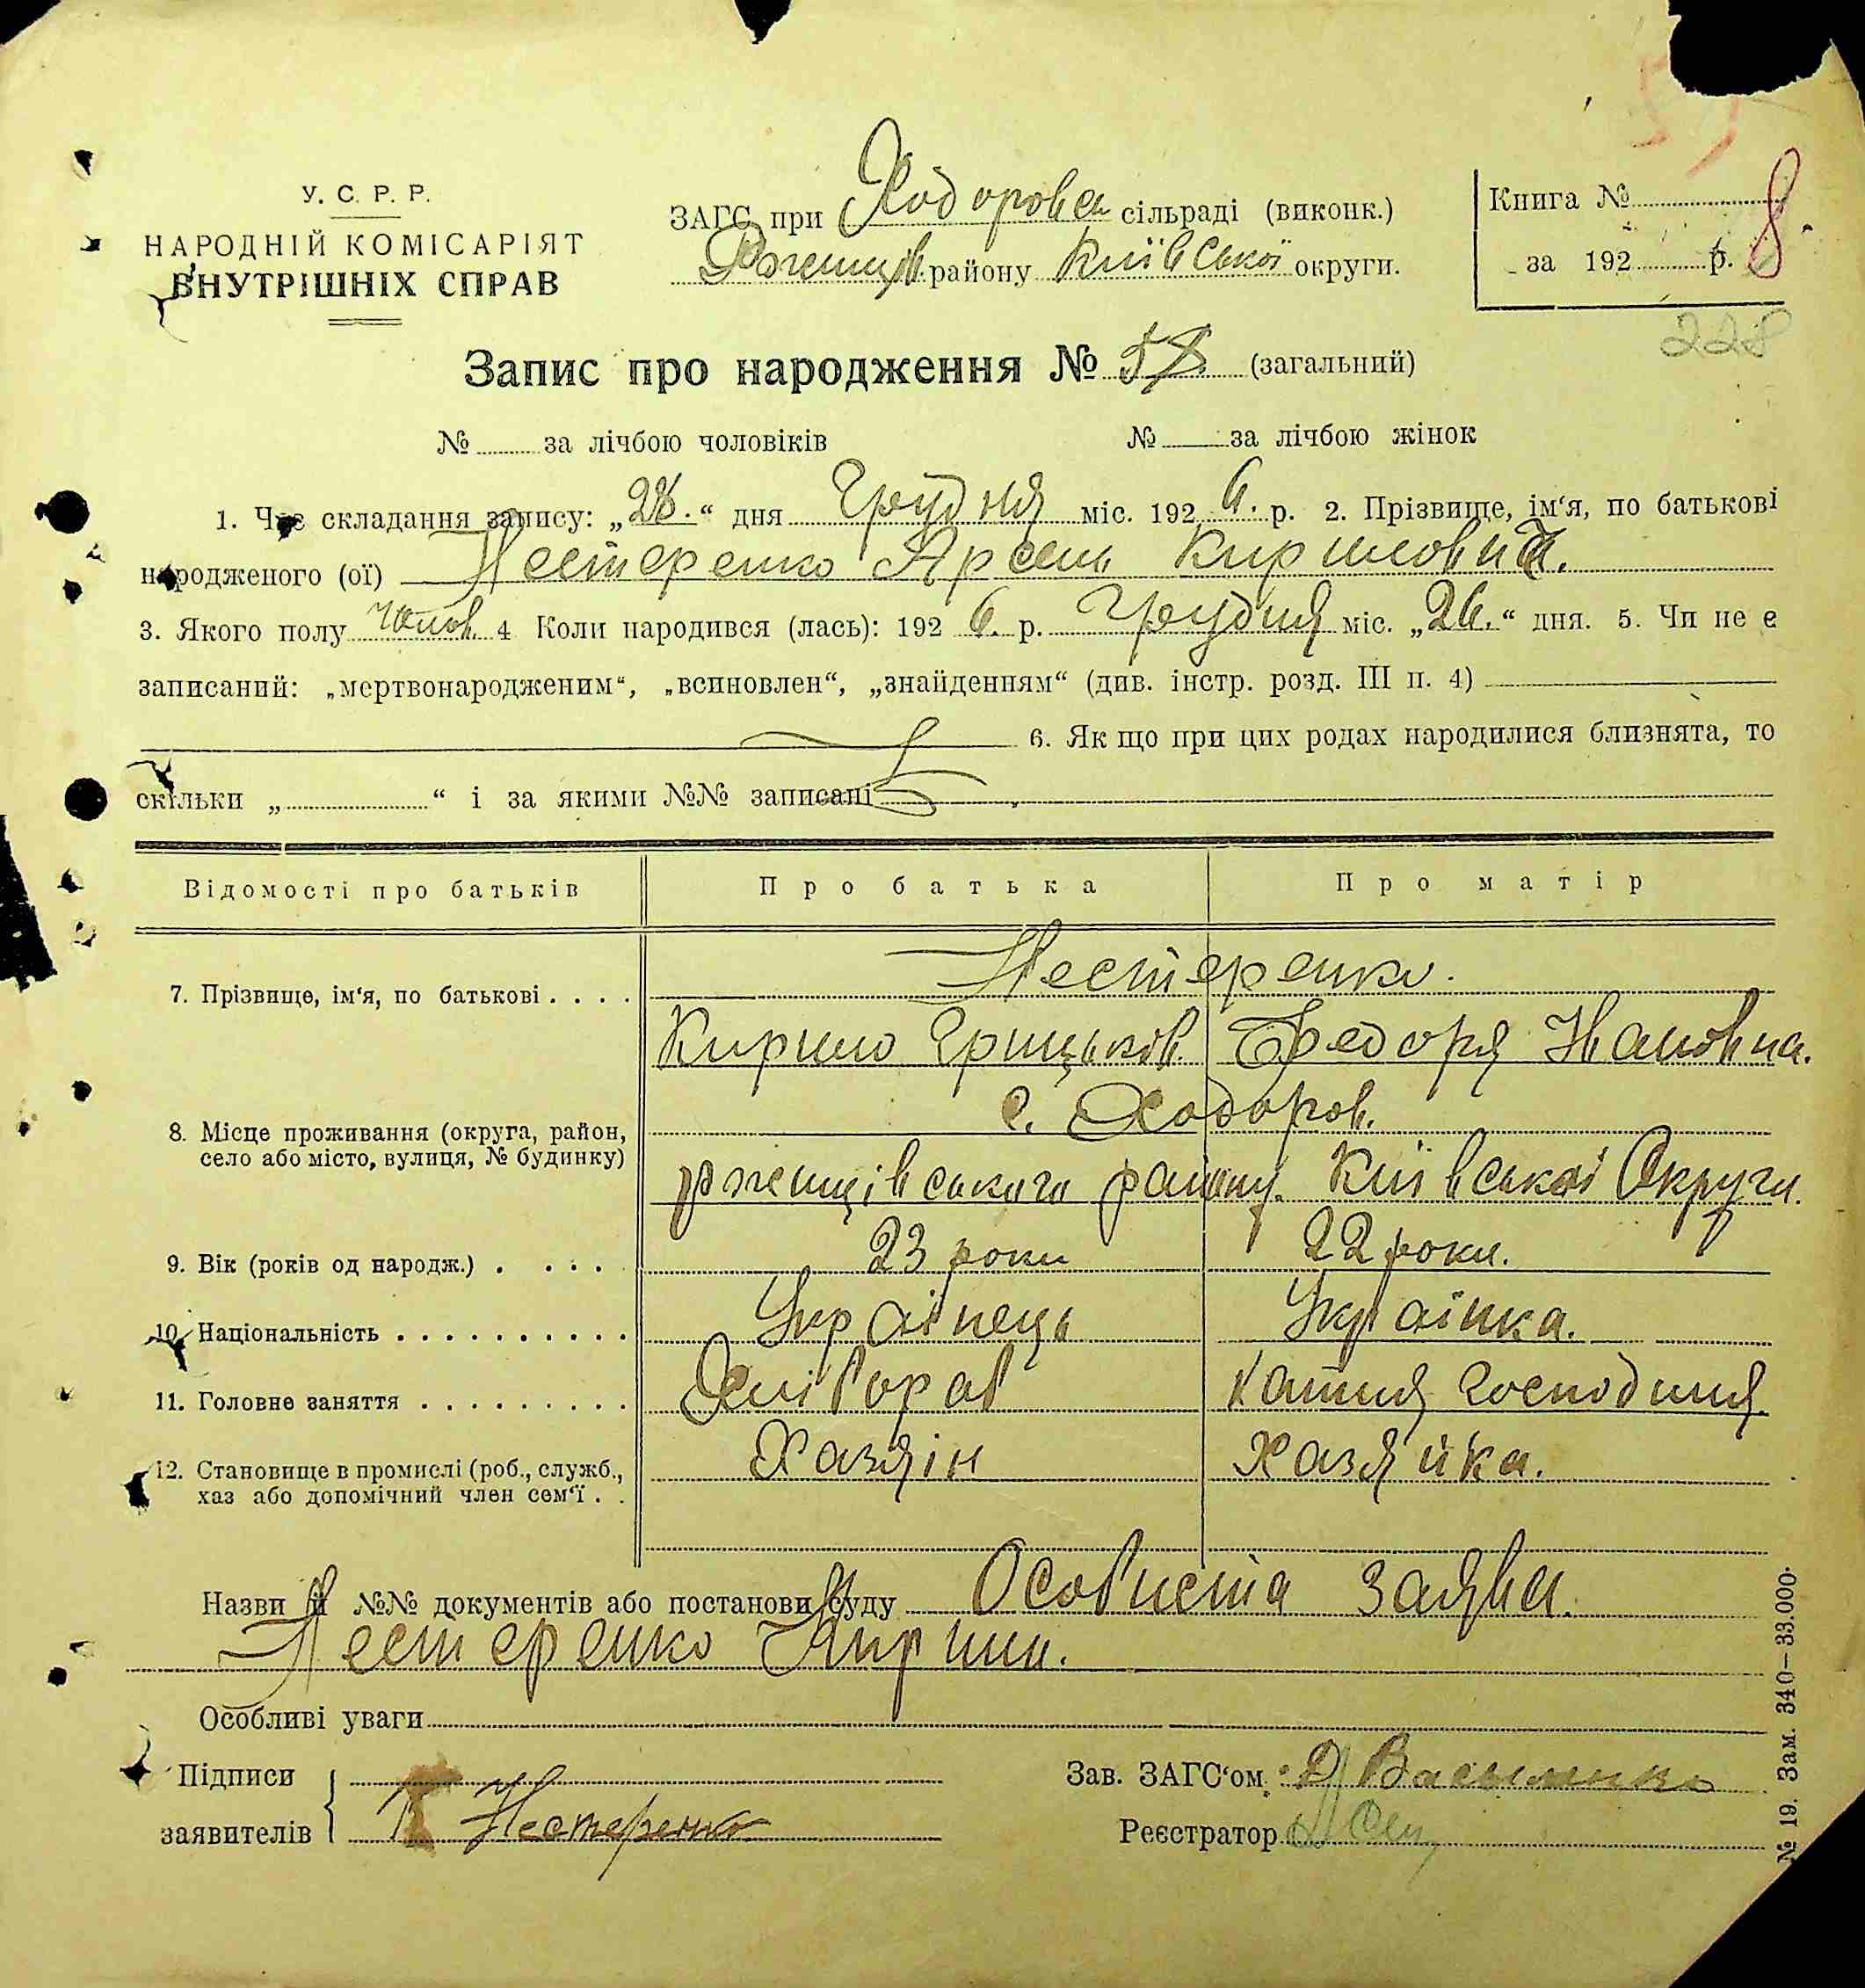 У. С. Р. Р.
НАРОДНІЙ КОМІСАРІЯТ
ВНУТРІШНІХ СПРАВ
ЗАГС при Ходоров сільраді (виконк.)
Ржищів. району Київської округи.
Книга №
за 192 р. 8
228
Запис про народження № 58 (загальний)
№ за лічбою чоловіків № за лічбою жінок
1. Час складання запису: „28.“ дня Грудня міс. 192 6. р. 2. Прізвище, ім‘я, по батькові
народженого (ої) Нестеренко Арсень Кирилович.
3. Якого полу Чолов. 4 Коли народився (лась): 192 6. р. Грудня міс. „26.“ дня. 5. Чи не є
записаний: „мертвонародженим“, „всиновлен“, „знайденням“ (див. інстр. розд. III п. 4)
6. Як що при цих родах народилися близнята, то
скільки „ “ і за якими №№ записані
Відомості про батьків Про батька Про матір
7. Прізвище, ім‘я, по батькові . . . . Нестеренко.
Кирило Грицьков. Федоря Івановна.
8. Місце проживання (округа, район, село або місто, вулиця, № будинку) с. Ходоров.
Ржищівського району. Київської Округи.
9. Вік (років од народж.) . . . . 23 роки 22 роки.
10. Національність . . . . . . . . . . . Українець Українка.
11. Головне заняття . . . . . . . . . Хлібороб Хатня господиня.
12. Становище в промислі (роб., служб., хаз або допомічний член сем‘ї . . Хазяін Хазяйка.
Назви й №№ документів або постанови суду Особиста заява.
Нестеренко Кирили.
Особливі уваги
Підписи
заявителів К Нестеренко
Зав. ЗАГС‘ом Д Василенко
Реєстратор
№ 19. Зам. 340—33.000.